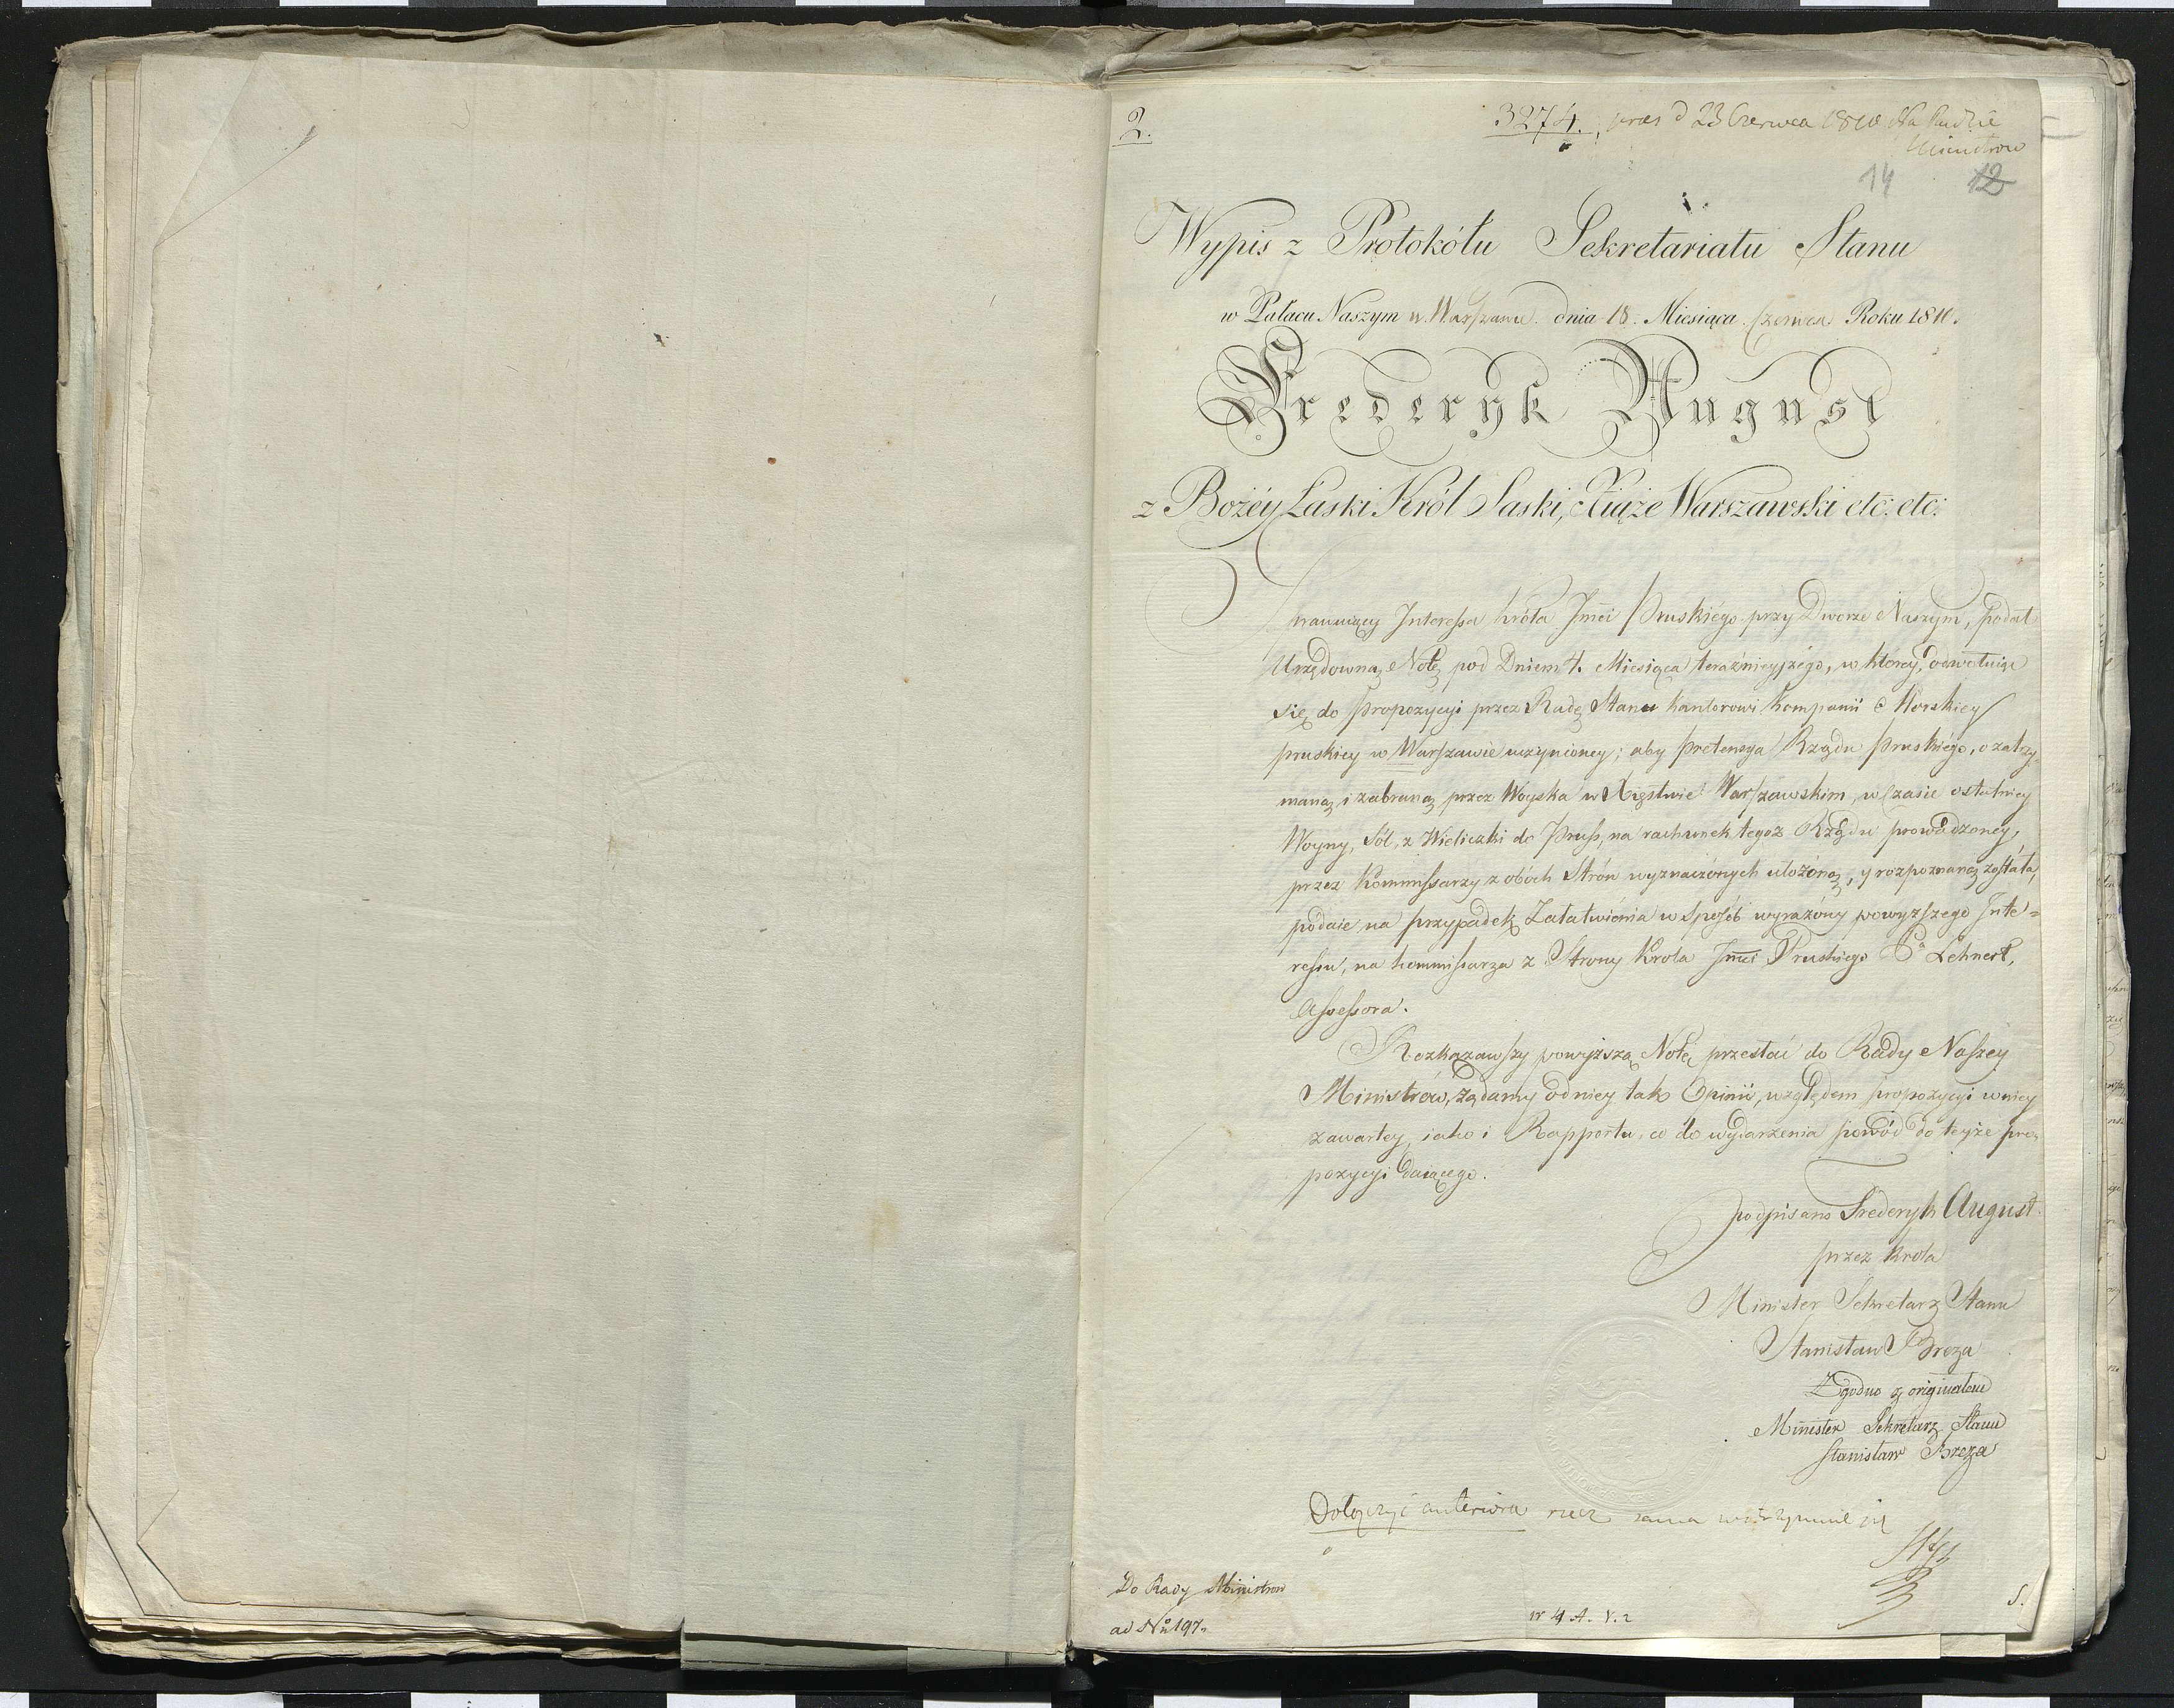 2.
3274. praes d 23 Czerwca 1810 Na Radzie
Ministrow
14 12
Wypis z Protokółu Sekretariatu Stanu
w Pałacu Naszym w Warszawie dnia 18. Miesiąca Czerwca Roku 1810.
Frederyk August
z Bożéy Łaski Król Saski, Xiąże Warszawski etc: etc:
Interessa Króla Jmci Pruskiégo przy Dworze Naszym, podał
Urzędowną Notę pod Dniem 4. Miesiąca teraźnieyszégo, w którey, odwołuiąc
się do propozycyi przez Radę Stanu Kantorowi Kompanii Morskiey
pruskiey w Warszawie uczynioney; aby pretensya Rządu Pruskiégo, o zatrzy-
maną i zabraną przez Woyska w Xięstwie Warszawskim, w czasie ostatniey
Woyny, Sól, z Wieliczki do Pruss, na rachunek tegoż Rządu prowadzoney,
przez Kommissarzy z obóch Strón wyznaczónych ułożóną, y rozpoznaną została,
podaie na przypadek Załatwiénia w sposób wyrażóny powyższego Inte=
ressu, na kommissarza z Strony Krola Jmci Pruskiego Pa Lehnert,
Assessora.
Rozkazawszy powyższą Notę przesłać do Rady Naszey
Ministrów, żądamy od niey tak Opinii, względem propozycyi w niey
zawartey, iako i Rapportu, co do wydarzenia powód do teyże pro-
pozycyi daiącego.
podpisano Frederyk August
przez Krola
Minister Sekretarz Stanu
Stanisław Breza
Zgodno z originałem
Minister Sekretarz Stanu
Stanisław Breza
Dołączyć anteriora rzecz sama
Do Rady Ministrow
ad No 197.
S.